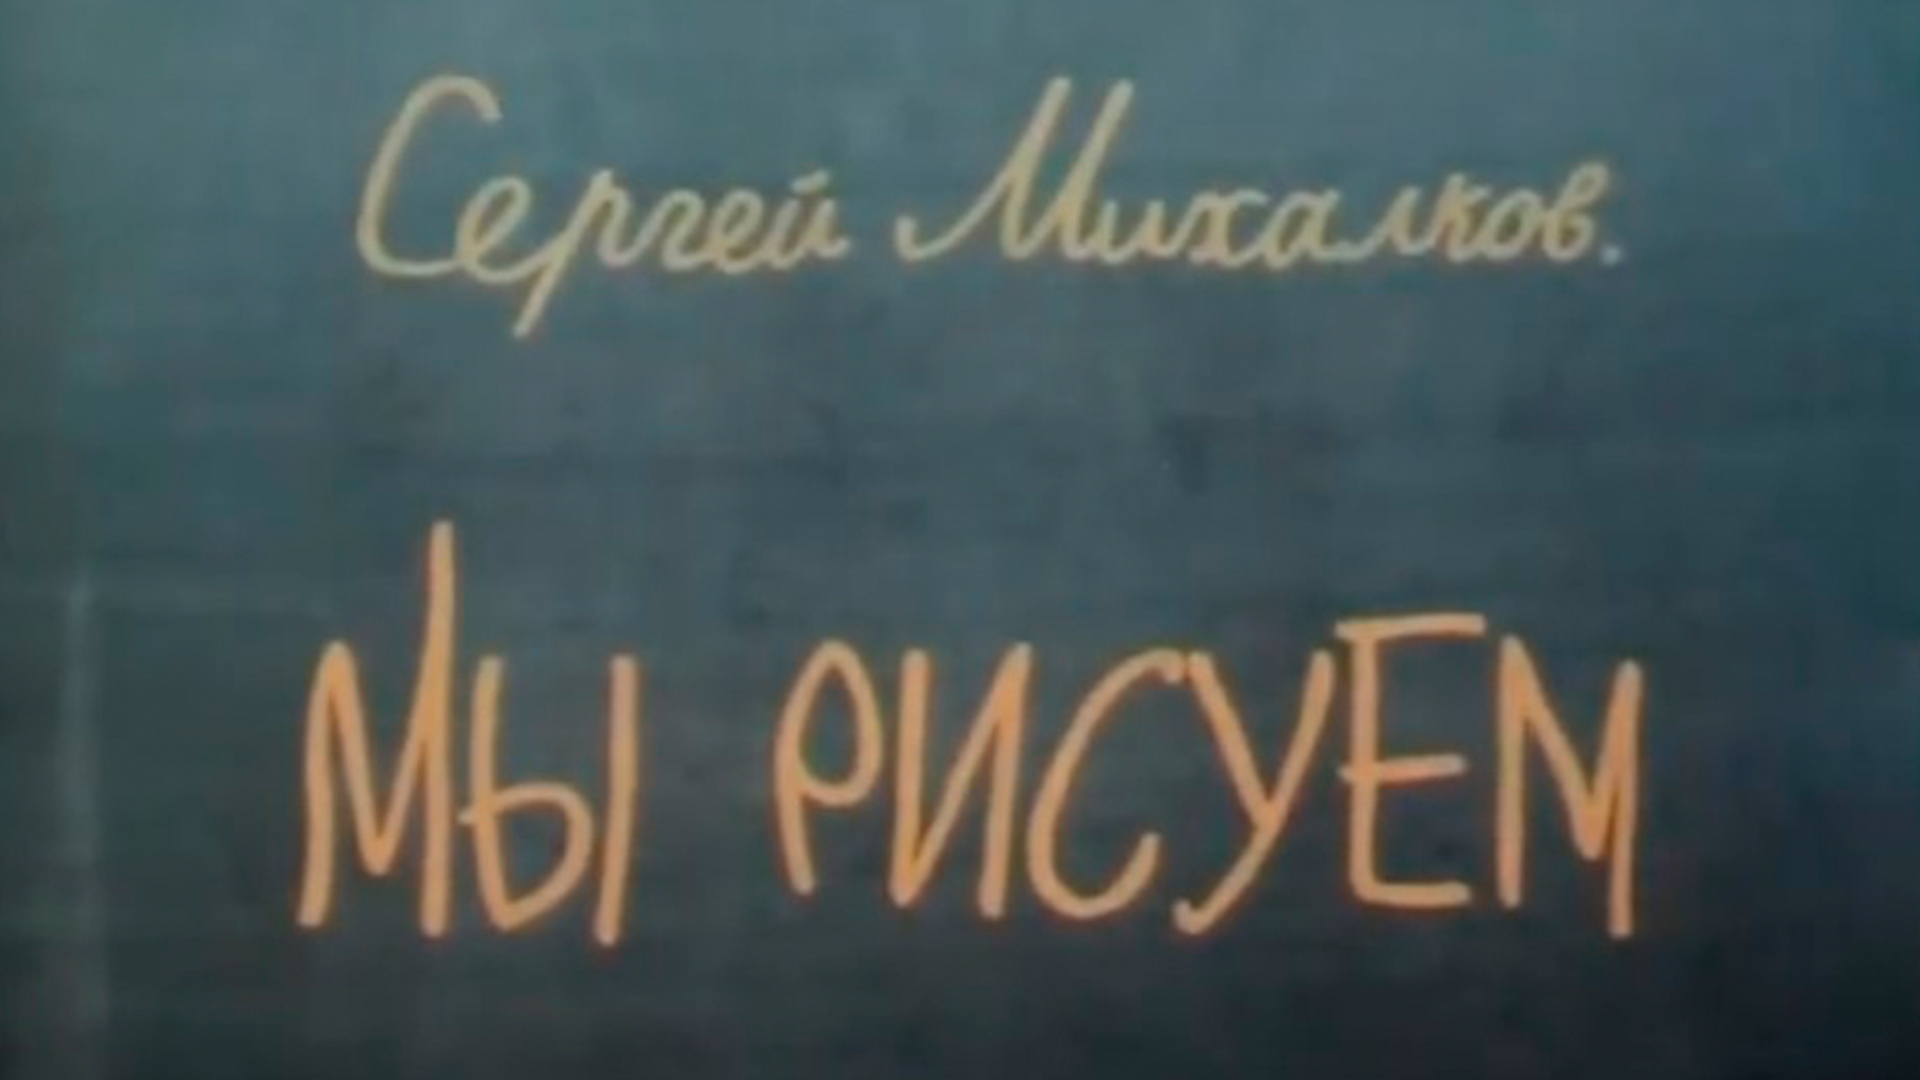 Сергей Михалков.
Мы РИСУЕМ